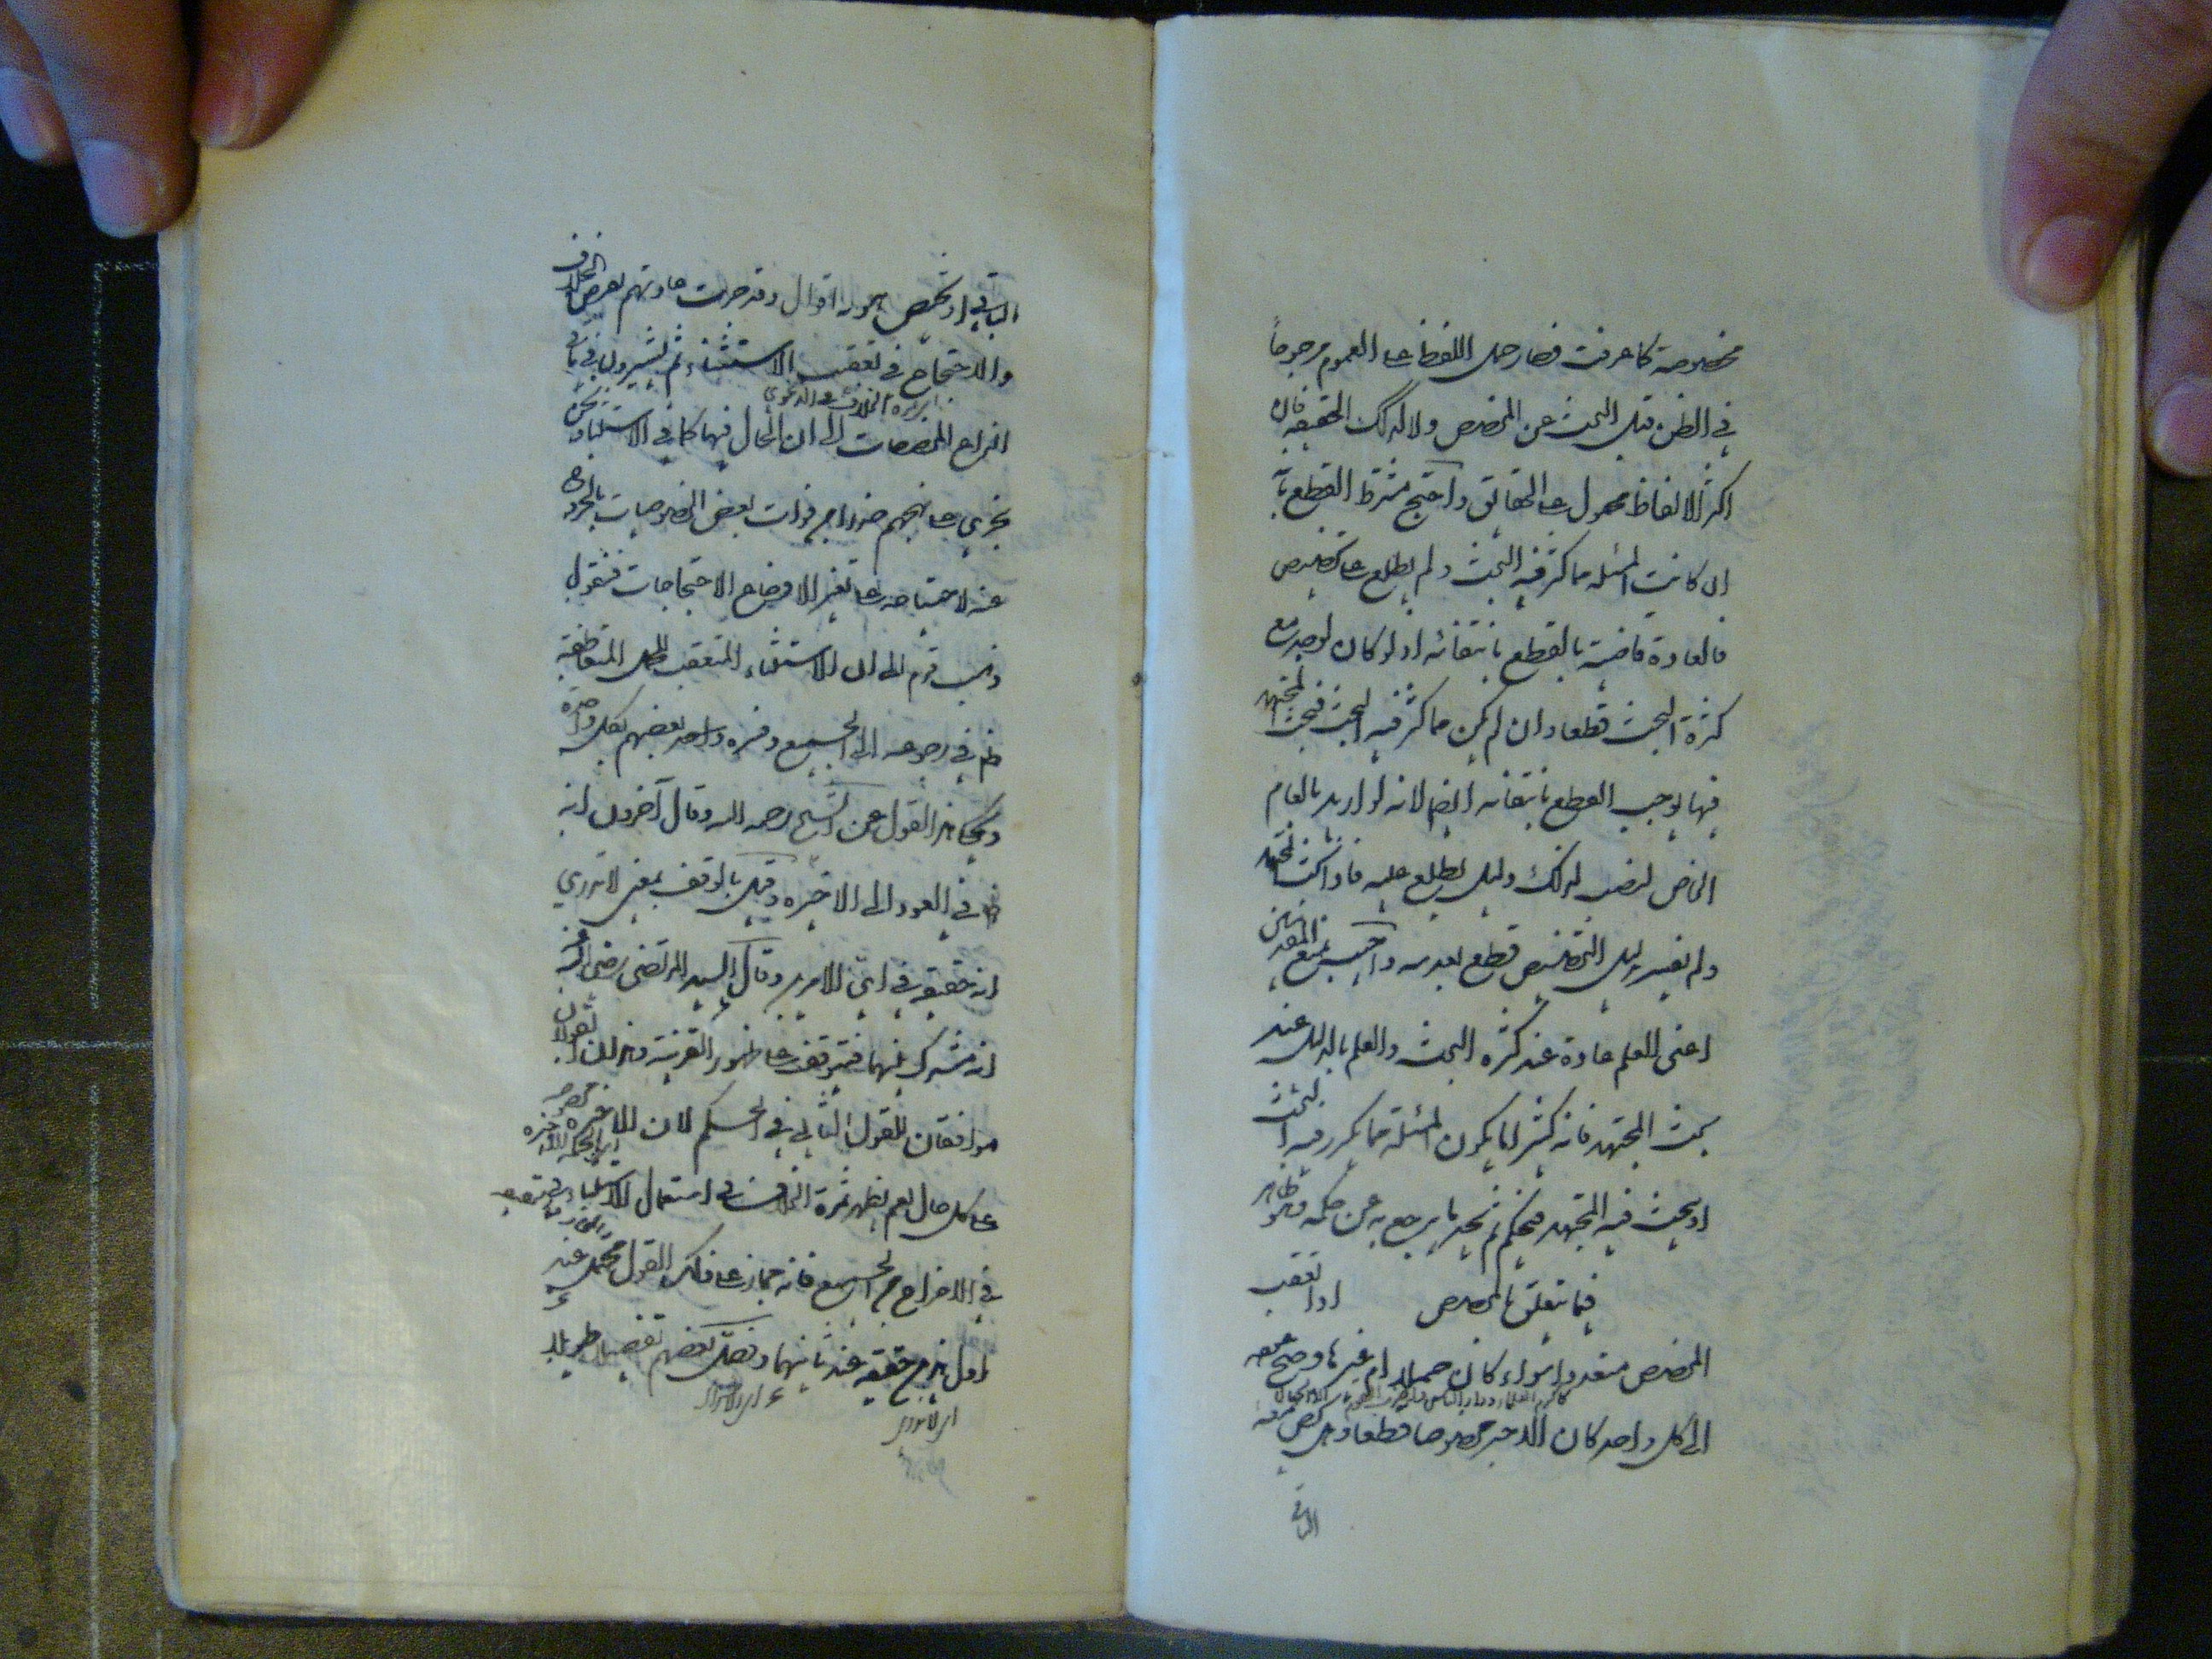 مخصوصه كما عرفت فصار حمل اللفظ على العموم مرجوحاً
في الظن قبل البحث عن المخصص ولا كذلك الحقيقة فان
اكثر الالفاظ محمول على الحقائق واحتج مشترط القطع بانه
ان كانت المسئلة مما كثر فيه البحث ولم يطلع على تخصيص
فالعادة قاضية بالقطع بانتفائه اذ لو كان لوجد مع
كثرة البحث قطعا وان لم يكن مما كثر فيه البحث فبحث المجتهد
فيها يوجب القطع بانتفائه ايضا لانه لو اريد بالعام
الخاص لنصب لذلك دليل يطلع عليه فاذا بحث المجتهد
ولم يعثر بدليل التخصيص قطع بعدمه واجيب بمنع المقدمتين
اعنى العلم عادة عند كثرة البحث والعلم بالدليل عند
بحث المجتهد فانه كثيرا ما يكون المسئلة مما تكرر فيه البحث
او يبحث فيه المجتهد فيحكم ثم يجد ما يرجع به عن حكمه وهو ظاهر
فيما يتعلق بالمخصص اذا تعقب
المخصص متعددا سواء كان جملا ام غيرها وصح عوده
الى كل واحد كان الاخير مخصوصا قطعا وهل يخص معه
الباقي
الباقي او يختص هو به اقوال وقد جرت عادتهم بفرض الخلاف
والاحتجاج في تعقب الاستثناء ثم يشيرون في باقي
انواع المخصصات الى ان الحال فيها كما في الاستثناء ونحن
نجري على نهجهم حذرا من فوات بعض الخصوصيات بالخروج
عنه لاحتياجه الى تغيير الاوضاع الاحتجاجات فنقول
ذهب قوم الى ان الاستثناء المتعقب للجمل المتعاطفة
ظاهر في رجوعه الى الجميع وفسره بعضهم بكل واحدة
ويحكى هذا القول عن الشيخ رحمه الله وقال آخرون انه
ظاهر في العود الى الاخيرة وقيل بالوقف بمعنى لا ندري
انه حقيقة في اي الامرين وقال السيد المرتضى رضي الله عنه
انه مشترك بينهما فيتوقف على ظهور القرينة وهذان القولان
موافقان للقول الثاني في الحكم لان الاخيرة مخصوصة
على كل حال نعم يظهر ثمرة الخلاف في استعمال الاستثناء
في الاخراج من الجميع فانه مجاز على ذلك القول محتمل عند
اول هذين حقيقة عند ثانيهما وفصل بعضهم تفصيلا طويلا